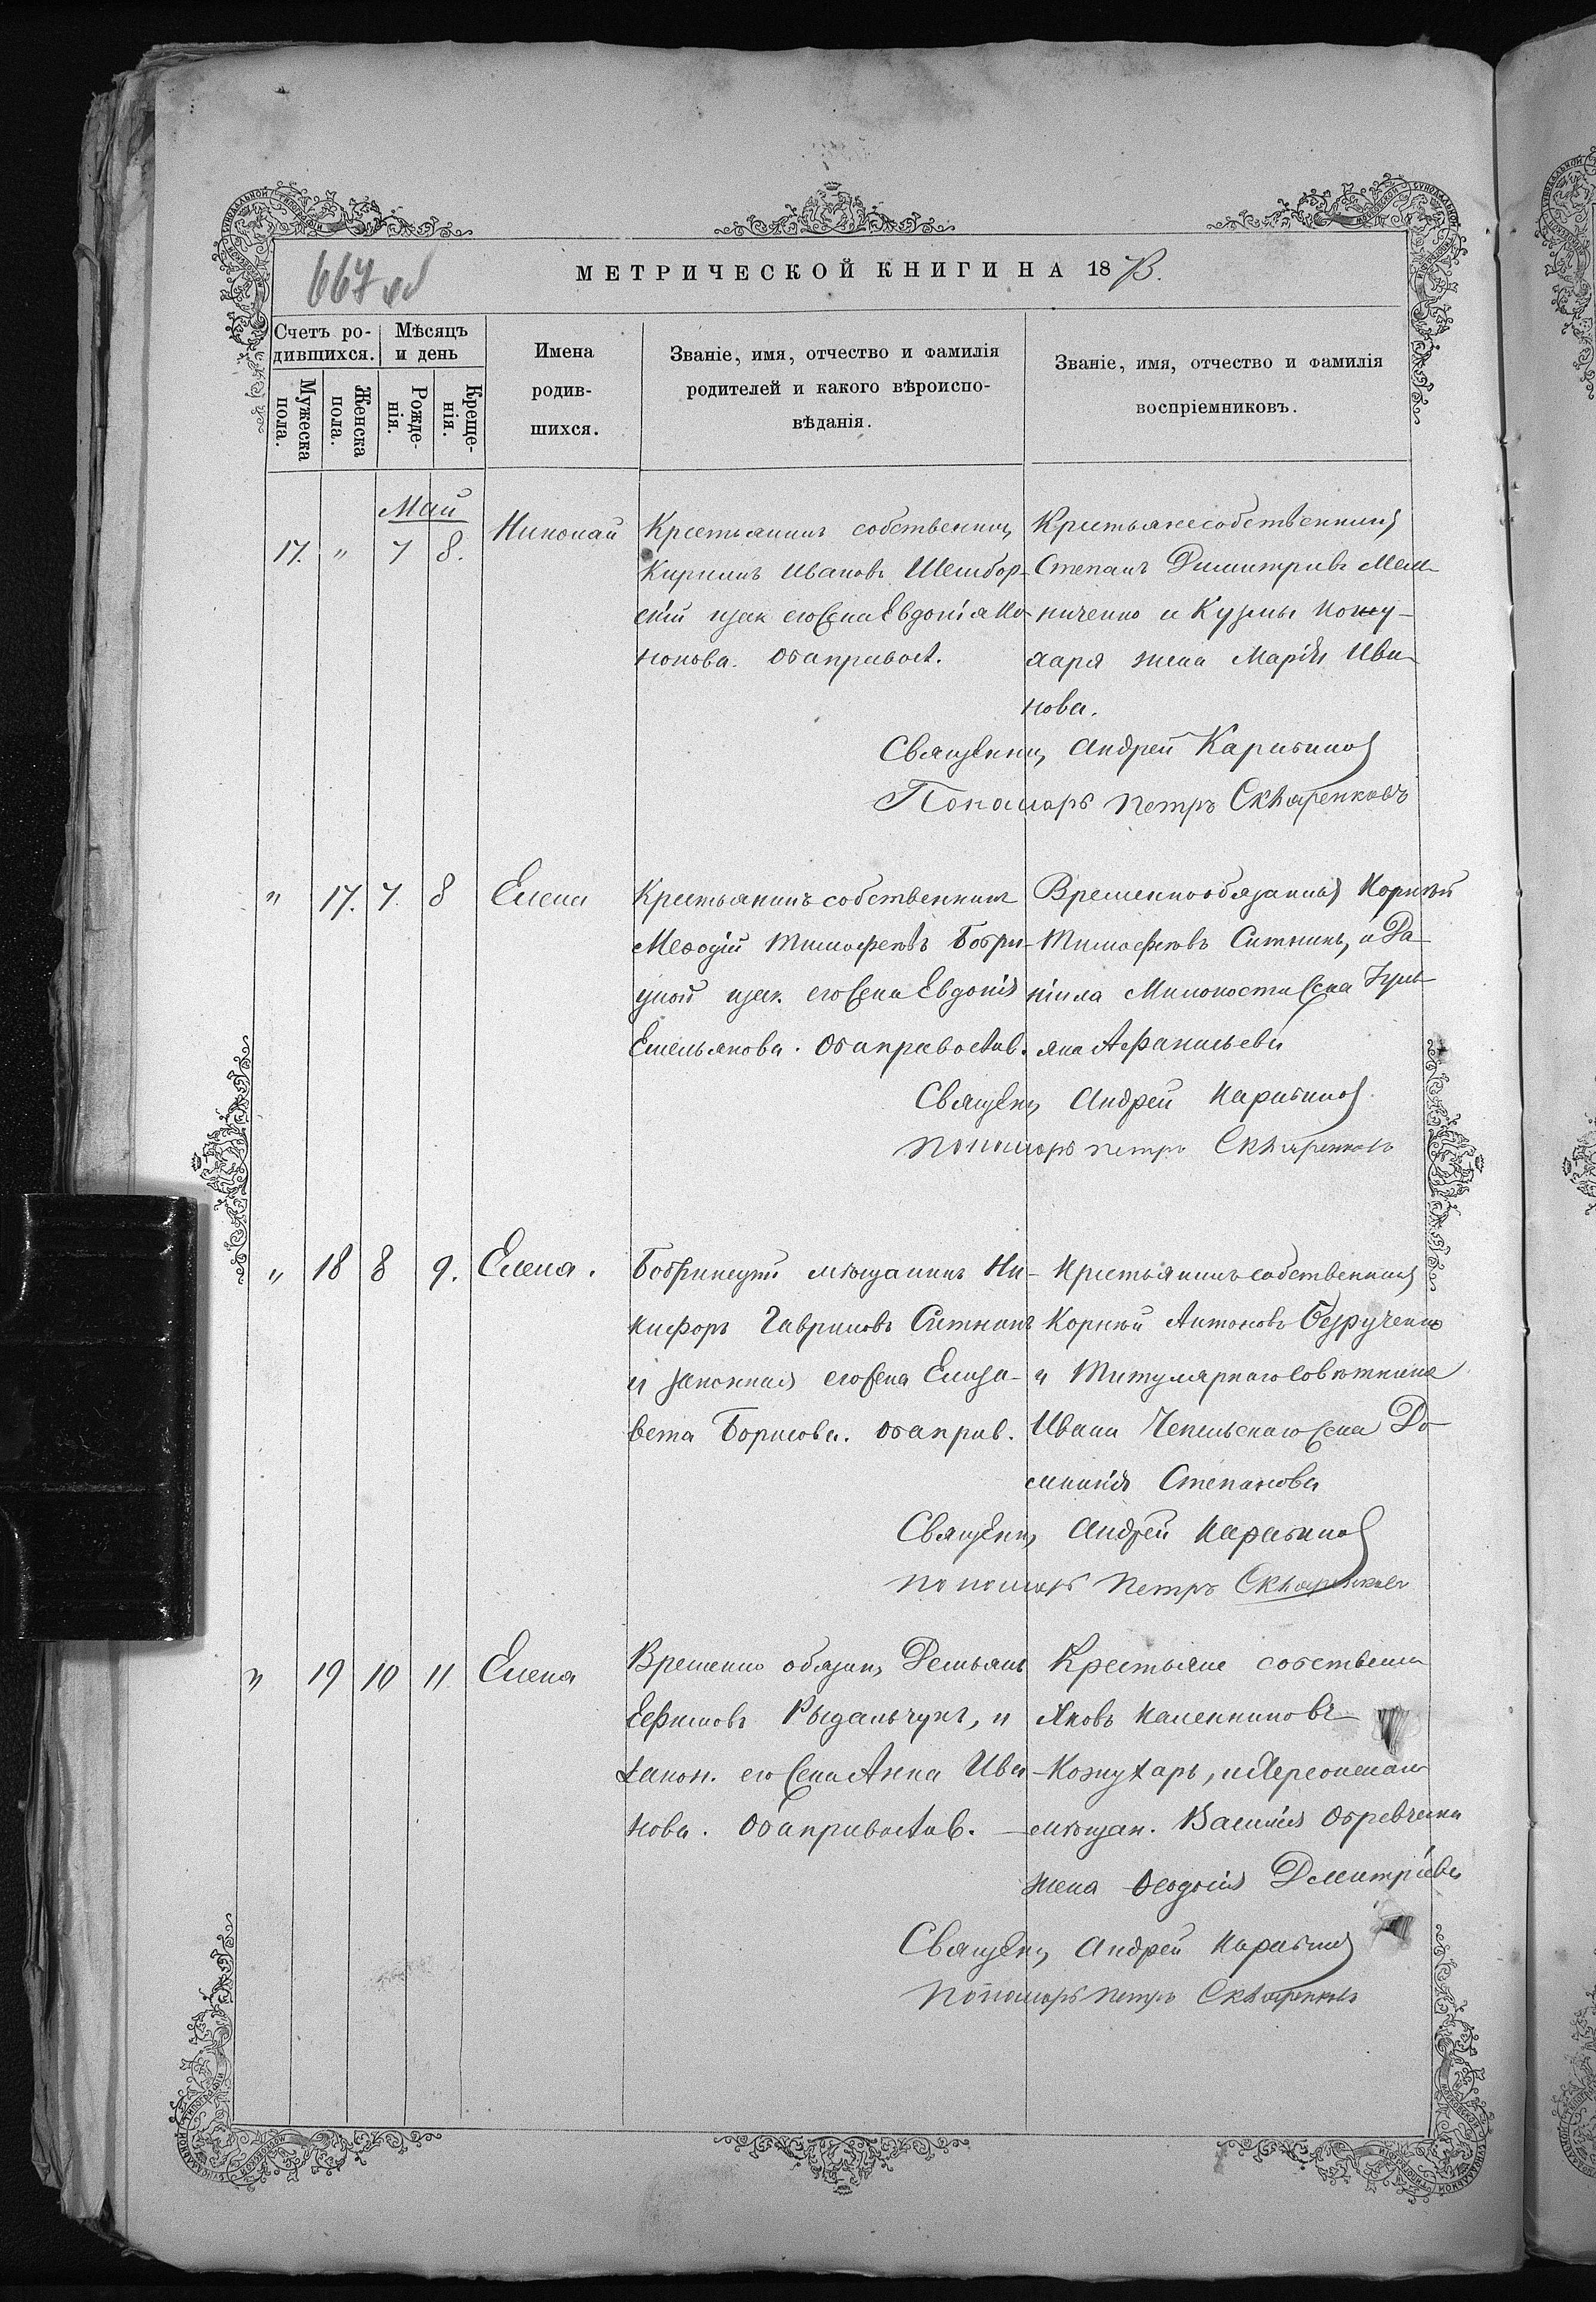 667 об
МЕТРИЧЕСКОЙ КНИГИ НА 1873.
Счетъ ро-
дившихся.
Мѣсяцъ
и день
Мужеска
пола.
Женска
пола.
Рожде-
нія.
Креще-
нія.
Имена
родив-
шихся.
Званіе, имя, отчество и фамилія
родителей и какого вѣроиспо-
вѣданія.
Званіе, имя, отчество и фамилія
воспріемниковъ.
Май
17. " 7 8. Николай
Крестьянинъ собственник
Кириллъ Ивановъ Шембор-
скій и зак его жена Евдокія Ко-
нонова. Оба правосл.
Крестьяне собственники
Степанъ Димитріевъ Мель
ниченко и Кузмы Кожу-
харя жена Марія Ива
нова.
Священник Андрей Карабинов
Пономарь Петръ Скляренковъ
" 17. 7. 8 Елена
Крестьянинъ собственник
Меѳодій Тимоѳеевъ Бобри-
цкой и зак. его жена Евдокія
Емельянова. Оба православ.
Временнообязанный Корнѣй
Тимоѳеевъ Ситникъ, и Да-
ніила Милокоста жена Іулі-
яна Афанасьева
Священ Андрей Карабинов
Пономарь Петръ Скляренковъ
" 18 8 9. Елена.
Бобринецкій мѣщанинъ Ни-
кифоръ Гавриловъ Ситникъ
и законная его жена Елиза-
вета Борисова. Оба прав.
Крестьянинъ собственник
Корнѣй Антоновъ Безрученко
и Титулярнаго совѣтника
Ивана Чепельскаго жена До-
мникія Степанова
Священ Андрей Карабинов
Пономарь Петръ Скляренковъ
" 19 10 11 Елена
Временно обязан Демьянъ
Ефимовъ Рыдальчукъ, и
закон. его жена Анна Ива
нова. Оба православ.
Крестьяне собствен
Яковъ Калениковъ
Кожухарь, и Херсонскаго
мѣщан. Василія Обревченка
жена Ѳеодосія Дмитріева
Священ Андрей Карабинов
Пономарь Петръ Скляренковъ